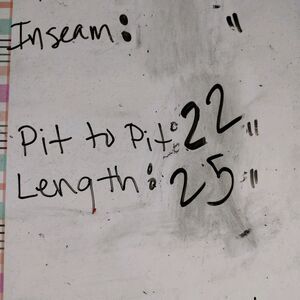 Inseam: "
Pit to Pit: 22"
Length: 25"